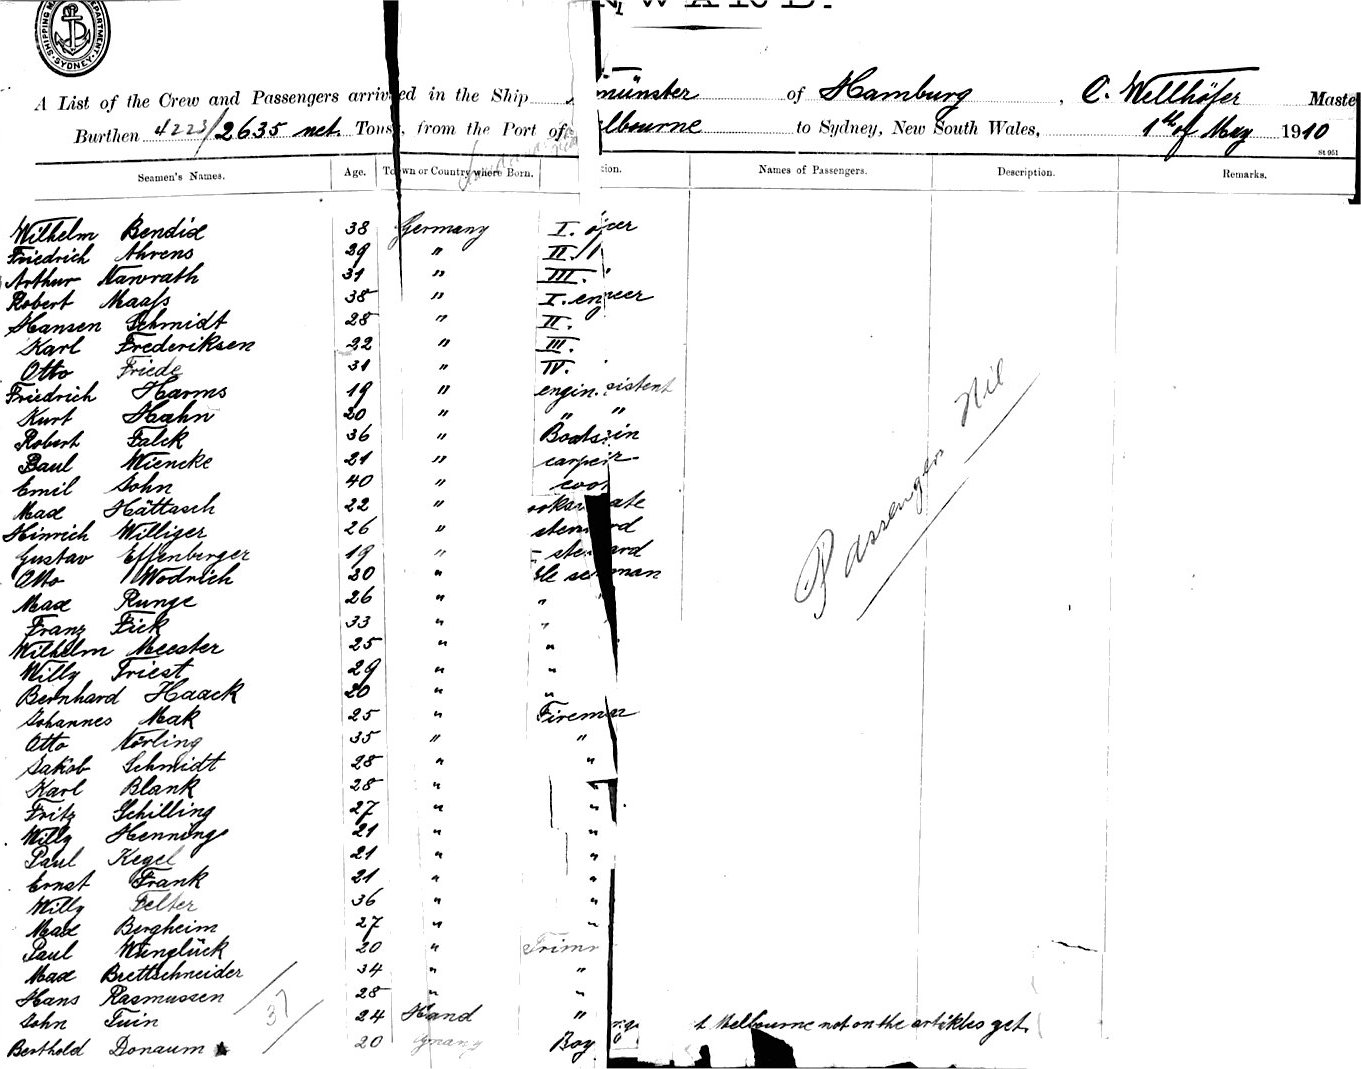 SHIPPING DEPARTMENT SYDNEY
A List of the Crew and Passengers arrived in the Ship münster of Hamburg, C. Wellhöfer Maste
Burthen 4223/2635 net. Tons, from the Port of elbourne to Sydney, New South Wales, 1th of May 1910
St 951
Seamen's Names. Age. Town or Country where Born. tion. Names of Passengers. Description. Remarks.
Wilhelm Bendix 38 Germany I. icer
Friedrich Ahrens 29 " II. "
Arthur Nawrath 31 " III. "
Robert Maafs 38 " I. engineer
Hansen Schmidt 28 " II.
Karl Frederiksen 22 " III.
Otto Friede 31 " IV.
Friedrich Harms 19 " engin. sistent
Kurt Hahn 20 " " "
Robert Falck 36 " Boats in
Paul Wiencke 21 "
Emil John 40 " coo
Max Hättasch 22 " ooks ate
Hinrich Williger 26 " stew rd
Gustav Effenberger 19 " stew ard
Otto Wodrich 30 " ble seaman
Max Runge 26 " "
Franz Fick 33 " "
Wilhelm Meester 25 " "
Willy Triest 29 " "
Bernhard Haack 20 " "
Johannes Mak 25 " Fireman
Otto Nörling 35 " "
Jakob Schmidt 28 " "
Karl Blank 28 " "
Fritz Schilling 27 " "
Willy Hennings 21 " "
Paul Kegel 21 " "
Ernst Frank 21 " "
Willy Felter 36 " "
Max Bergheim 27 " "
Paul Wünglück 20 " Trimm
Max Brettschneider 34 " "
Hans Rasmussen 28 " "
John Tuin 24 Hand " t Melbourne not on the artikles get.
Berthold Donaum 20 many Boy
37
Passengers Nil